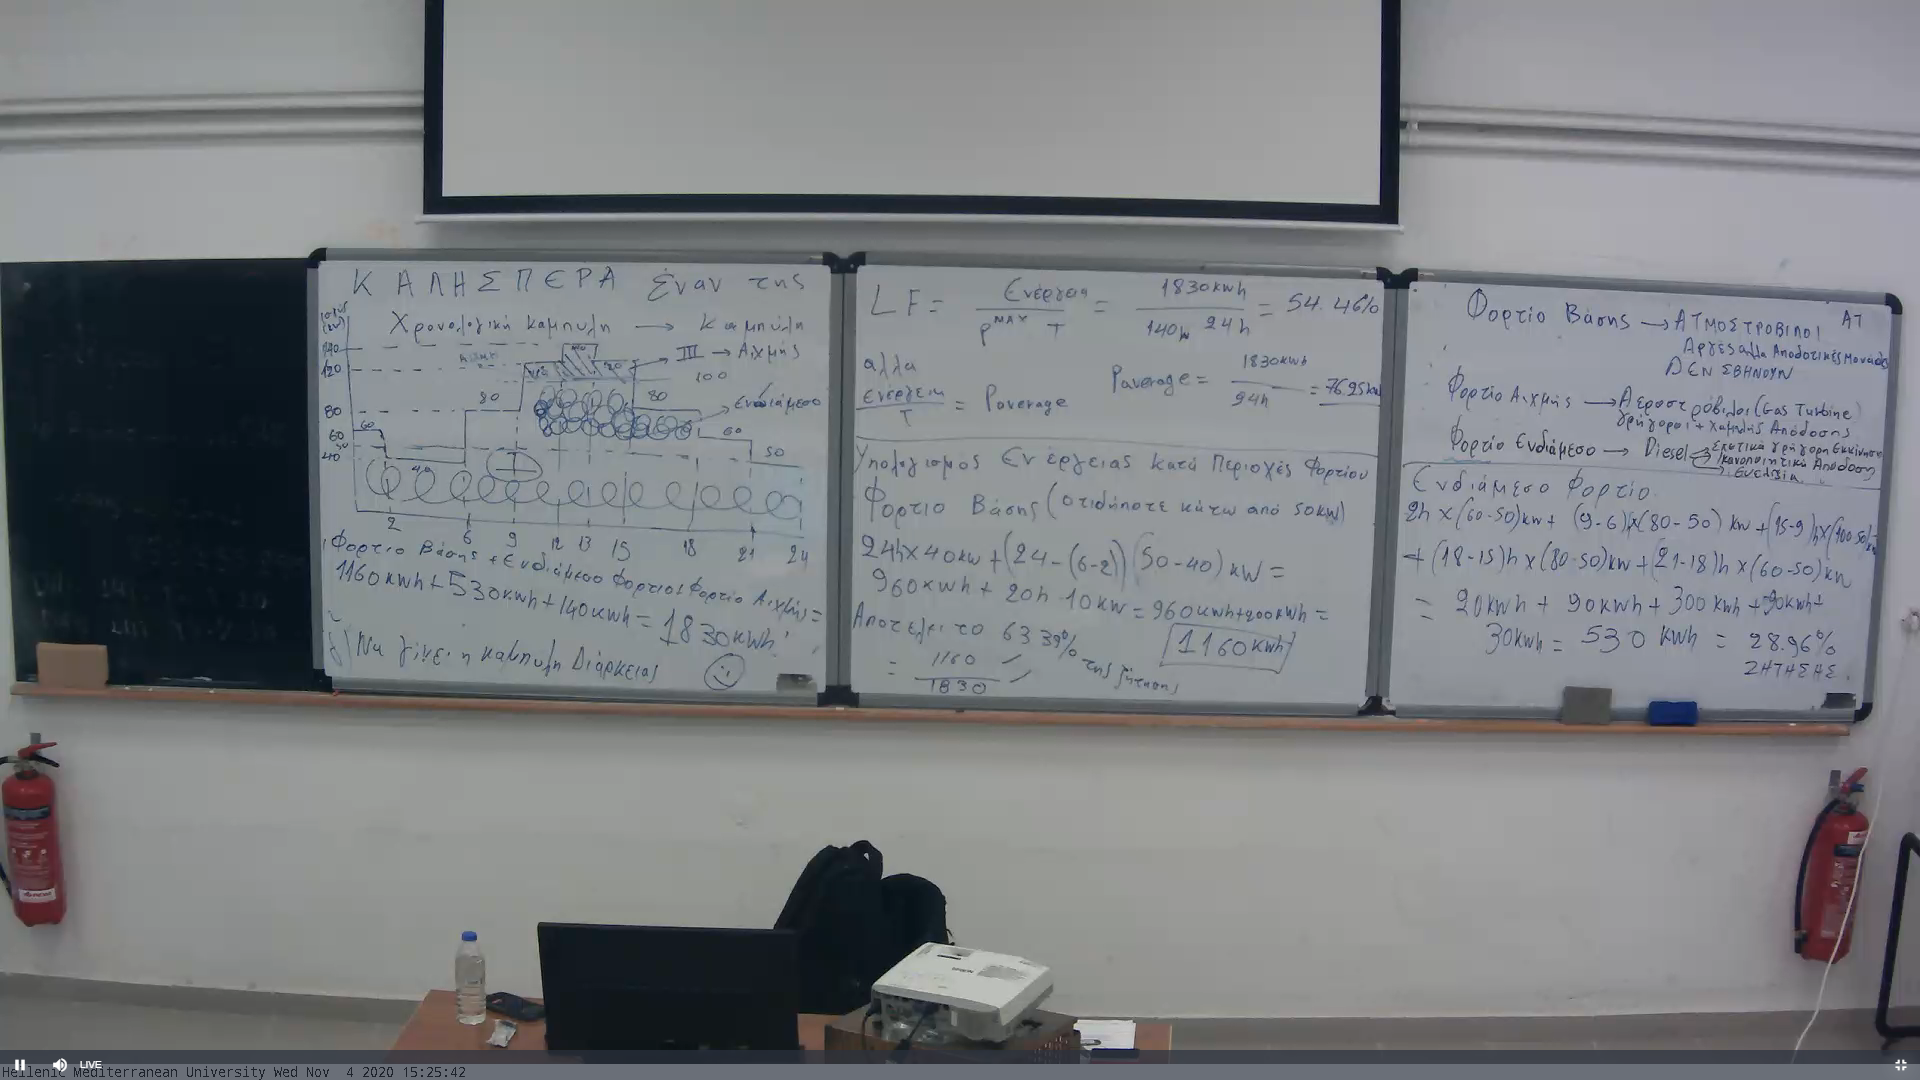 ΚΑΛΗΣΠΕΡΑ έναν της
Χρονολογική Καμπύλη → Καμπύλη
140
120
80
60
50
40
60
40
80
III → Αιχμής
100
80
ενδιάμεσο
60
50
I
2 6 9 12 13 15 18 21 24
Φορτιο Βάσης + Ενδιάμεσο Φορτιο+Φορτιο Αιχμής =
1160 kwh + 530kwh + 140kwh = 1830kwh
δ) Να γίνει η καμπυλη Διάρκειας
LF = Ενέργεια / P MAX T = 1830kwh / 140kw 24h = 54.46%
αλλα
ενέργεια / T = Paverage
Paverage = 1830kwh / 24h = 76.25kw
Υπολογισμός Ενέργειας Κατά Περιοχές Φορτίου
Φορτιο Βάσης (οτιδήποτε κάτω από 50kw)
24h x 40kw + (24-(6-2)) (50-40) kw =
960kwh + 20h 10kw = 960kwh+200kwh =
Αποτελει το 63.39% της ζήτησης
1160kwh
= 1160 / 1830
Φορτίο Βάσης → ΑΤΜΟΣΤΡΟΒΙΛΟΙ ΑΤ
Αργές αλλα Αποδοτικές Μονάδες
ΔΕΝ ΣΒΗΝΟΥΝ
Φορτίο Αιχμής → Αεροστρόβιλοι (Gas Turbine)
Γρήγοροι + Χαμηλής Απόδοσης
Φορτίο Ενδιάμεσο → Diesel → Σχετικά γρήγορη Εκκίνηση
ικανοποιητική Απόδοση
Ευελιξία
Ενδιάμεσο Φορτίο
2h x (60-50)kw + (9-6)h x (80-50) kw + (15-9)h x (100-50)kw
+ (18-15)h x (80-50)kw + (21-18)h x (60-50)kw
= 20kwh + 90kwh + 300 kwh + 90kwh +
30kwh = 530 kwh = 28.96%
ΖΗΤΗΣΗΣ
LIVE
Hellenic Mediterranean University Wed Nov 4 2020 15:25:42